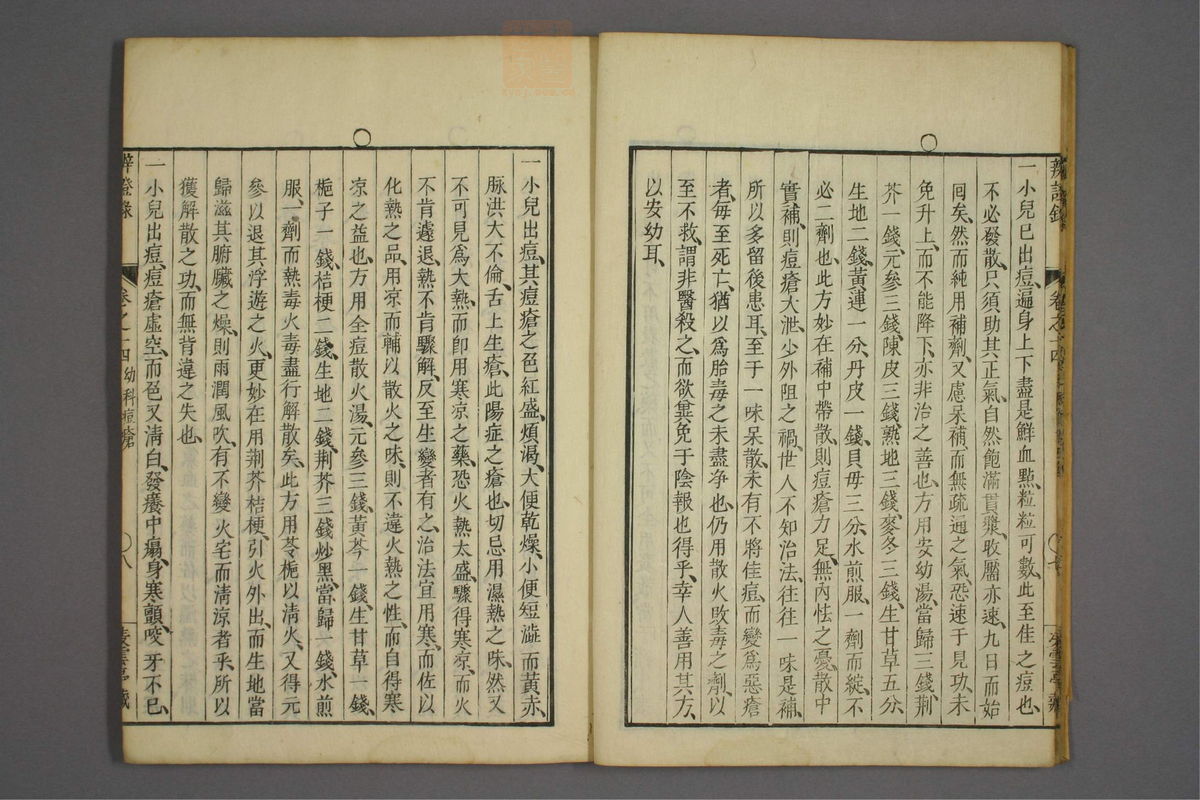 一小兒已出痘遍身上下盡是鮮血點、粒粒可數、此至佳之痘也、
不必發散、只須助其正氣、自然飽滿貫漿、收靨亦速、九日而始
囘矣、然而純用補劑、又慮呆補、而無疏通之氣、恐速于見功、未
免升上、而不能降下、亦非治之善也、方用安幼湯、當歸三錢、荆
芥一錢、元參三錢、陳皮三錢、熟地三錢、麥冬三錢、生甘草五分、
生地二錢、黃連一分、丹皮一錢、貝母三分、水煎服、一劑而綻、不
必二劑也、此方妙在補中帶散、則痘瘡力足、無內怯之憂、散中
實補、則痘瘡大泄、少外阻之禍、世人不知治法、往往一味是補、
所以多留後患耳、至于一味呆散、未有不將佳痘、而變爲惡瘡
者、每至死亡、猶以爲胎毒之未盡净也、仍用散火敗毒之劑、以
至不救、謂非醫殺之、而欲冀免于陰報也得乎、幸人善用其方、
以安幼耳、
一小兒出痘、其痘瘡之色紅盛、煩渴、大便乾燥、小便短澁、而黃赤、
脉洪大不倫、舌上生瘡、此陽症之瘡也、切忌用濕熱之味、然又
不可見爲大熱、而卽用寒凉之藥、恐火熱太盛、驟得寒凉、而火
不肯遽退、熱不肯驟解、反至生變者有之、治法宜用寒、而佐以
化熱之品、用凉而輔以散火之味、則不違火熱之性、而自得寒
凉之益也、方用全痘散火湯、元參三錢、黃芩一錢、生甘草一錢、
梔子一錢、桔梗二錢、生地二錢、荆芥三錢、炒黑、當歸一錢、水煎
服、一劑而熱毒火毒盡行解散矣、此方用芩梔以清火、又得元
參以退其浮遊之火、更妙在用荆芥桔梗、引火外出、而生地當
歸滋其腑臟之燥、則雨潤風吹、有不變火宅而清凉者乎、所以
獲解散之功、而無背違之失也、
一小兒出痘、痘瘡虛空、而色又淸白、發癢中塌、身寒顫、咬牙不已、
辨證錄 卷之十四幼科痘瘡 〇八